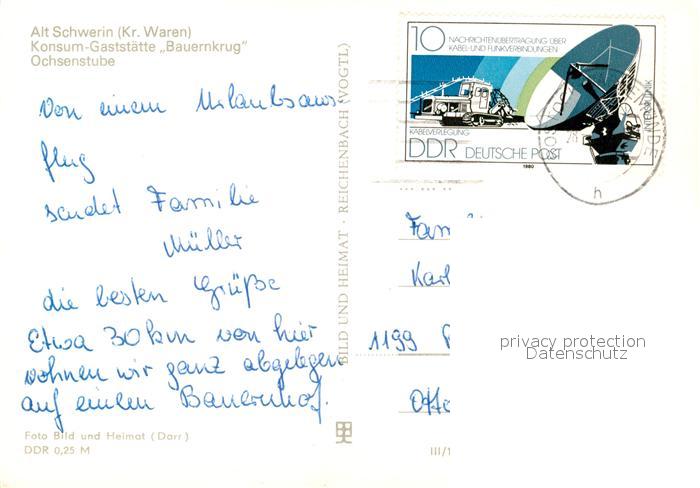 Alt Schwerin (Kr. Waren)
Konsum-Gaststätte „Bauernkrug"
Ochsenstube
Von einem Urlaubsaus-
flug
sendet Familie
Müller
die besten Grüße
Etwa 30 km von hier
wohnen wir ganz abgelegen
auf einem Bauernhof.
Foto Bild und Heimat (Darr)
DDR 0,25 M
BILD UND HEIMAT · REICHENBACH (VOGTL)
10 NACHRICHTENÜBERTRAGUNG ÜBER
KABEL- UND FUNKVERBINDUNGEN
KABELVERLEGUNG
DDR DEUTSCHE POST
1980
INTERSPUTNIK
h
Fam
Karl
1199
Otto
III/1
privacy protection
Datenschutz